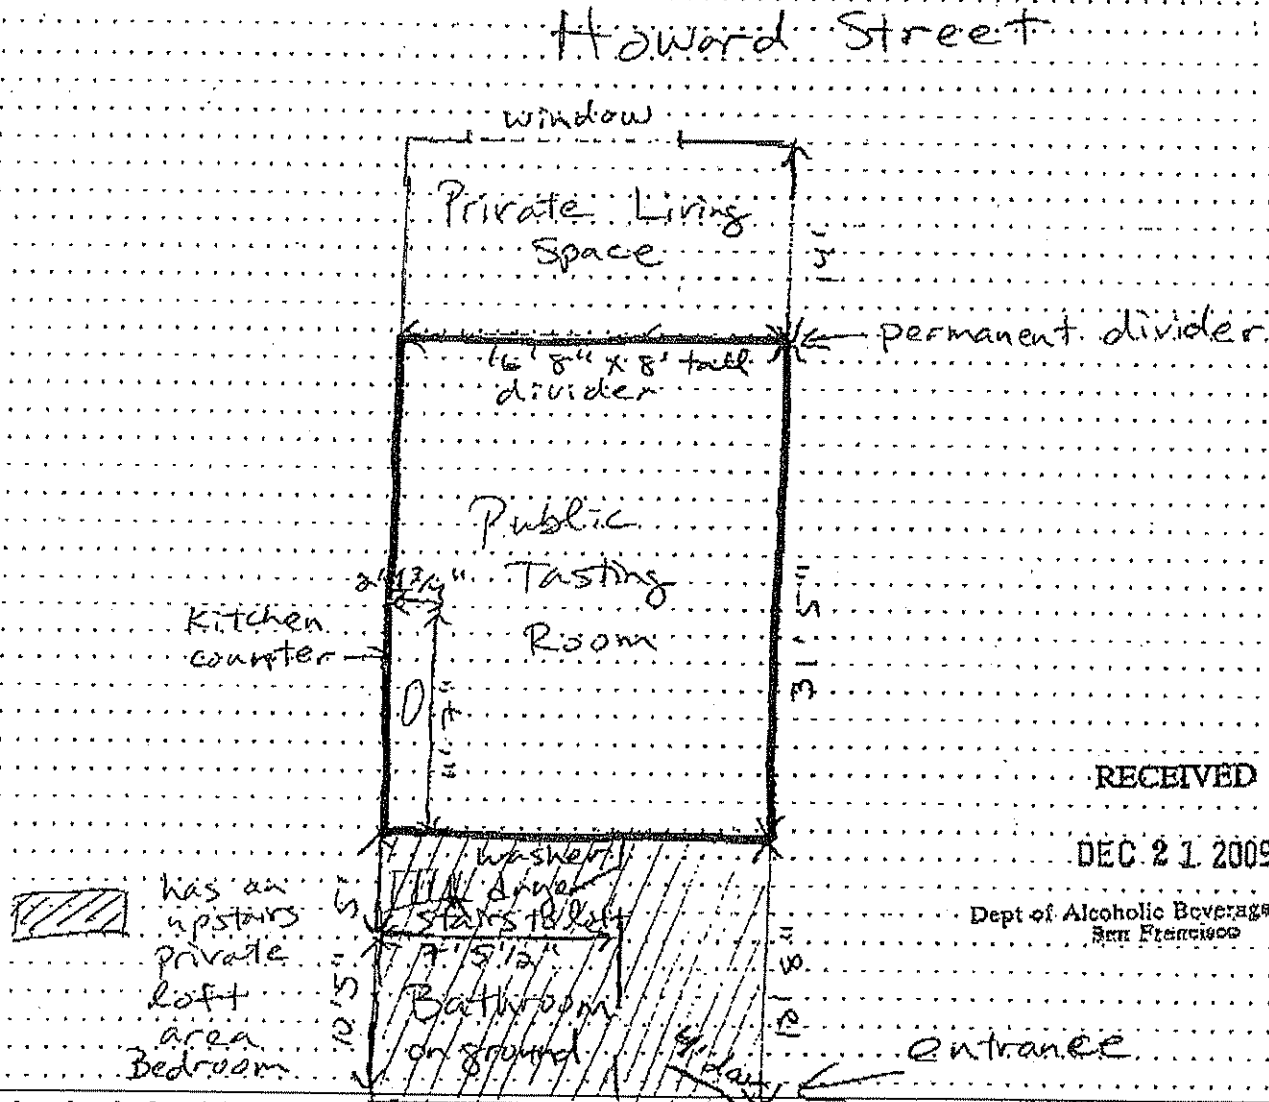 Howard Street
window
Private Living
Space
permanent divider
16' 8" x 8' tall
divider
Public
Tasting
Room
Kitchen
counter
31' 5"
RECEIVED
DEC 21 2009
Dept of Alcoholic Beverage
San Francisco
washer
dryer
stairs to loft
7' 5 1/2"
Bathroom
on ground
has an
upstairs
private
loft
area
Bedroom
5'
10' 5"
entrance